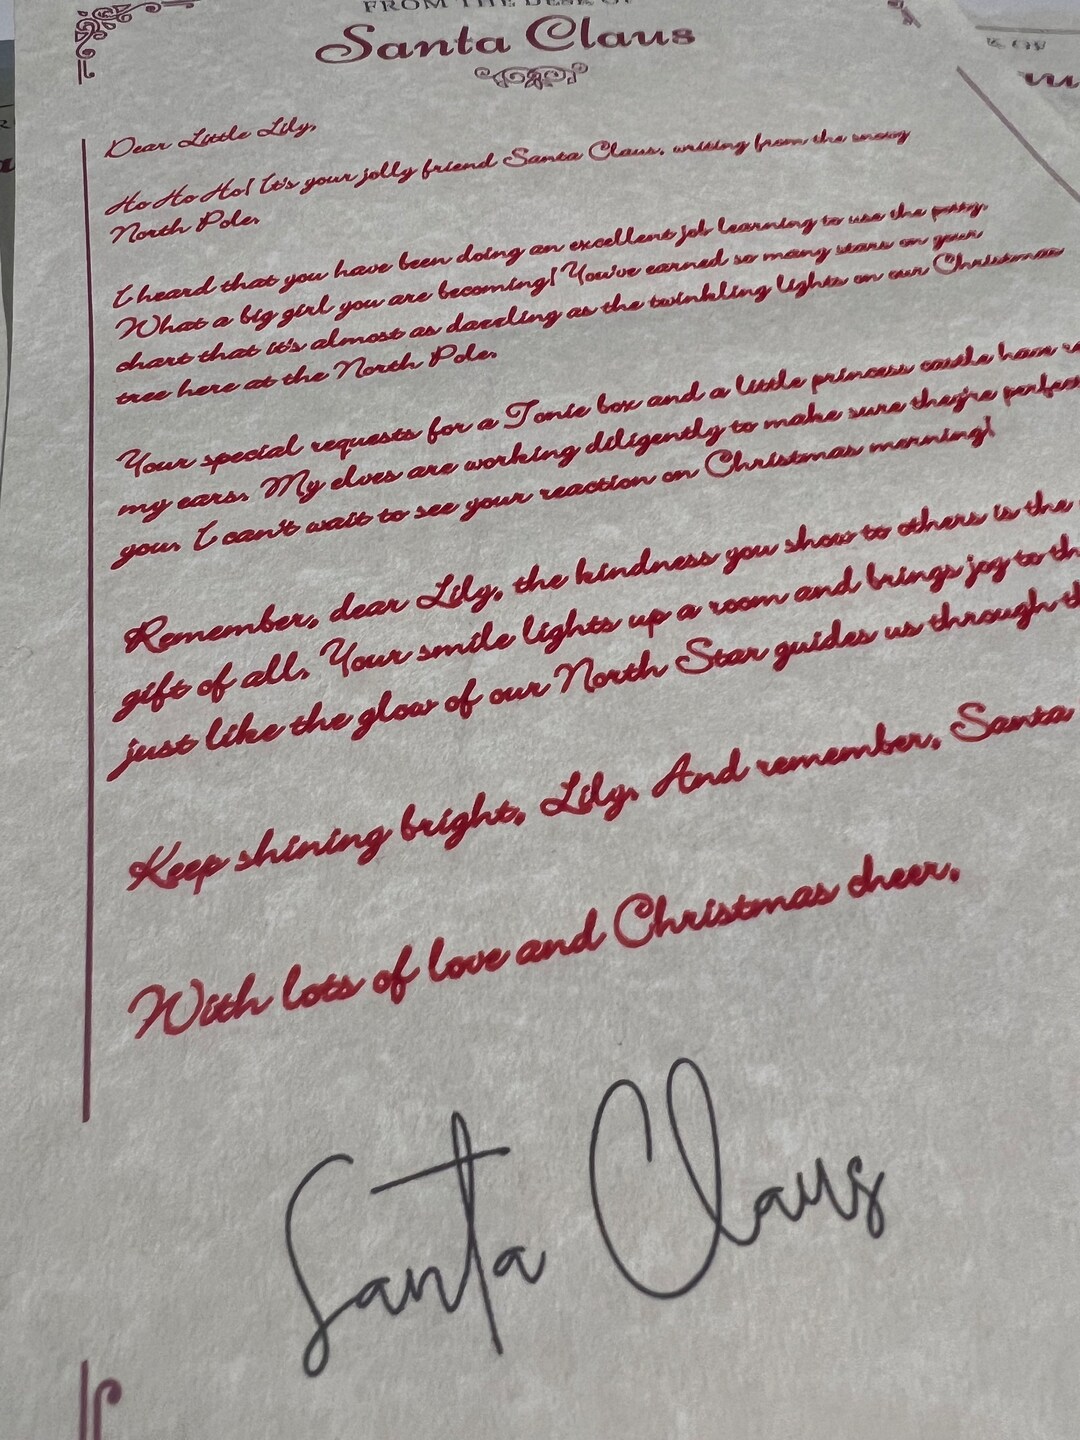 FROM THE DESK OF
Santa Claus
Dear Little Lily,
Ho Ho Ho! It's your jolly friend Santa Claus, writing from the snowy
North Pole.
I heard that you have been doing an excellent job learning to use the potty.
What a big girl you are becoming! You've earned so many stars on your
chart that it's almost as dazzling as the twinkling lights on our Christmas
tree here at the North Pole.
Your special requests for a Tonie box and a little princess castle have
my ears. My elves are working diligently to make sure they're perfect
you. I can't wait to see your reaction on Christmas morning!
Remember, dear Lily, the kindness you show to others is the
gift of all. Your smile lights up a room and brings joy to
just like the glow of our North Star guides us through
Keep shining bright, Lily. And remember, Santa
With lots of love and Christmas cheer,
Santa Claus